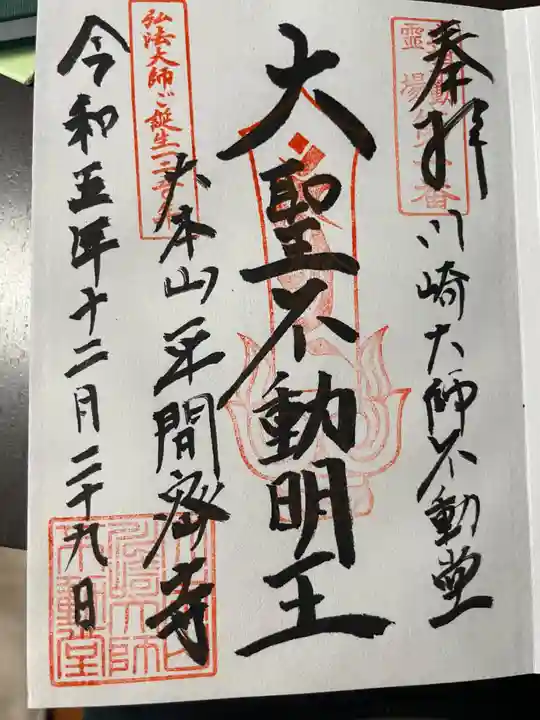 奉拝
川崎大師不動堂
大聖不動明王
大本山平間密寺
弘法大師ご誕生
令和五年十二月二十九日
霊場
川崎大師
不動堂